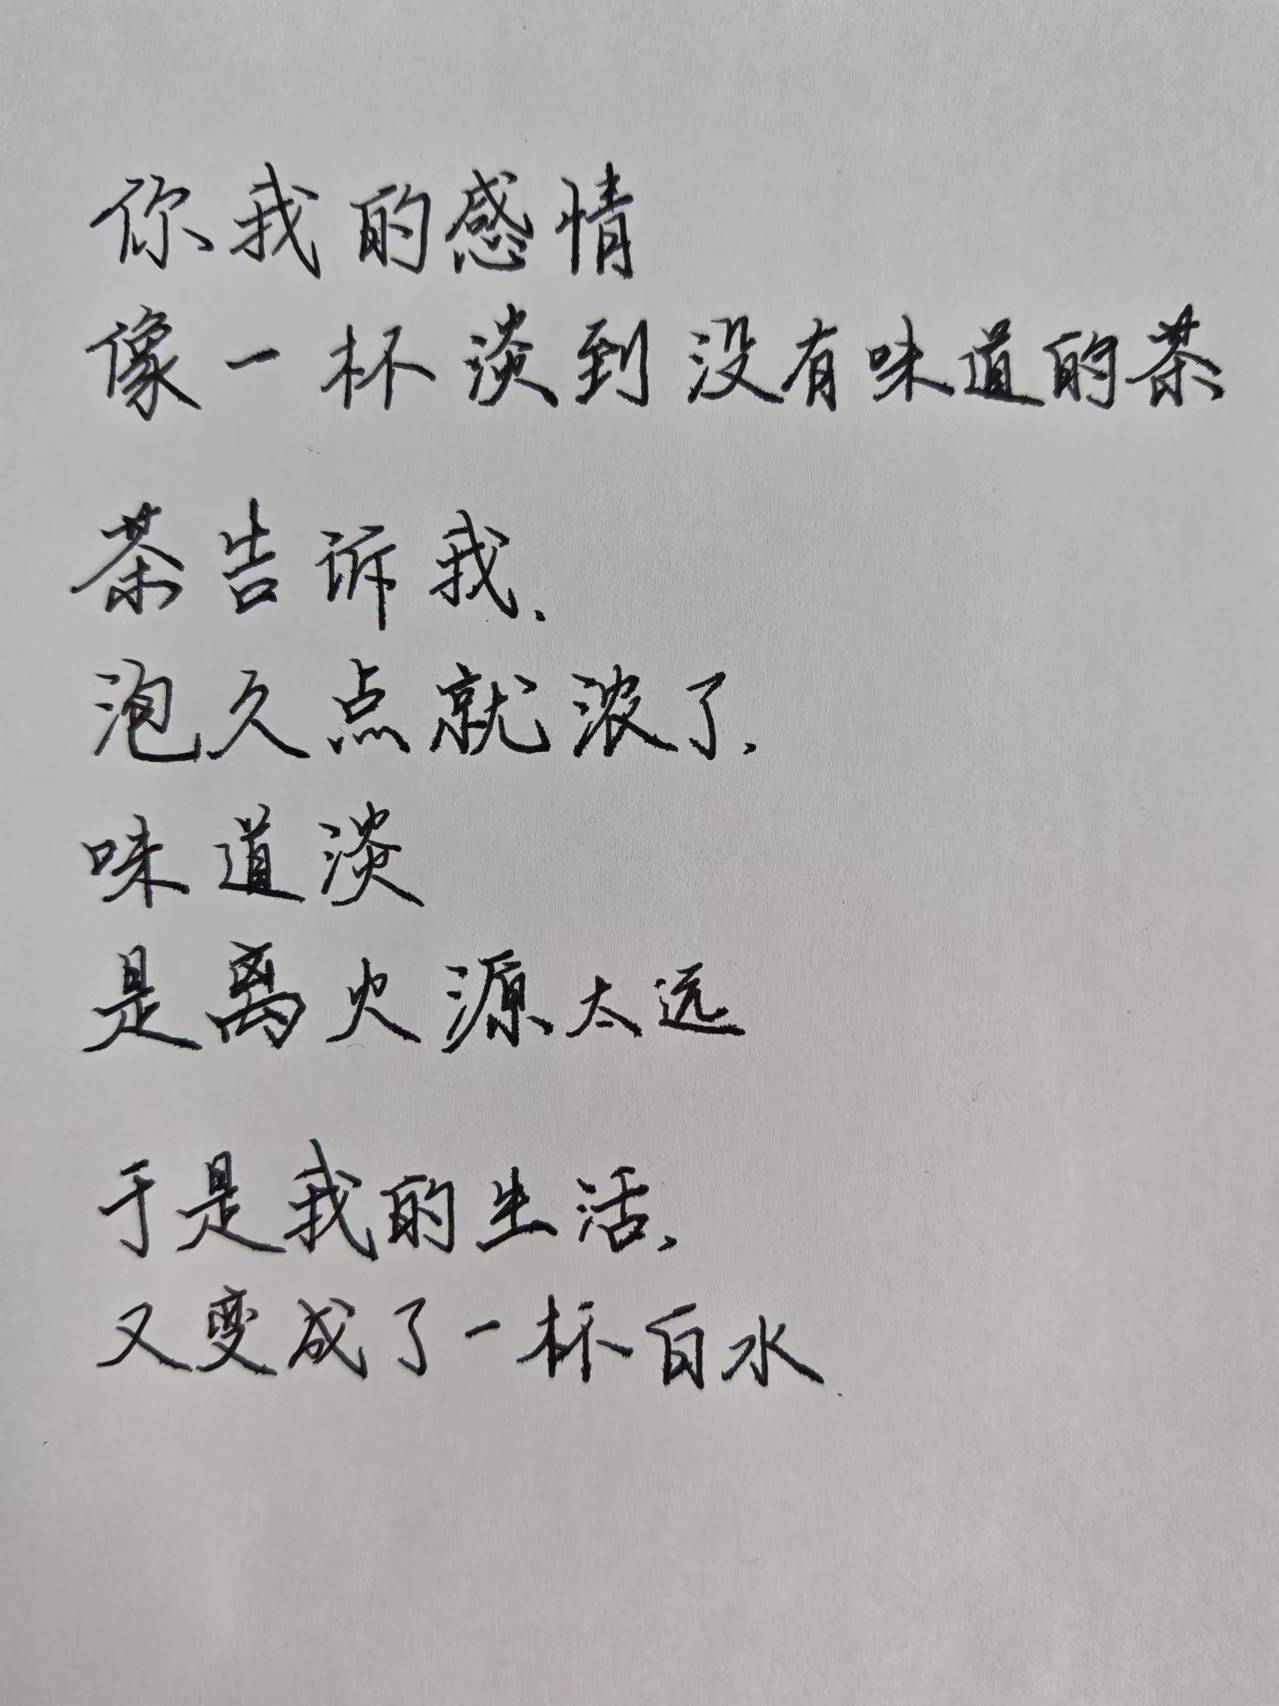 你我的感情
像一杯淡到没有味道的茶
茶告诉我.
泡久点就浓了.
味道淡
是离火源太远
于是我的生活.
又变成了一杯白水